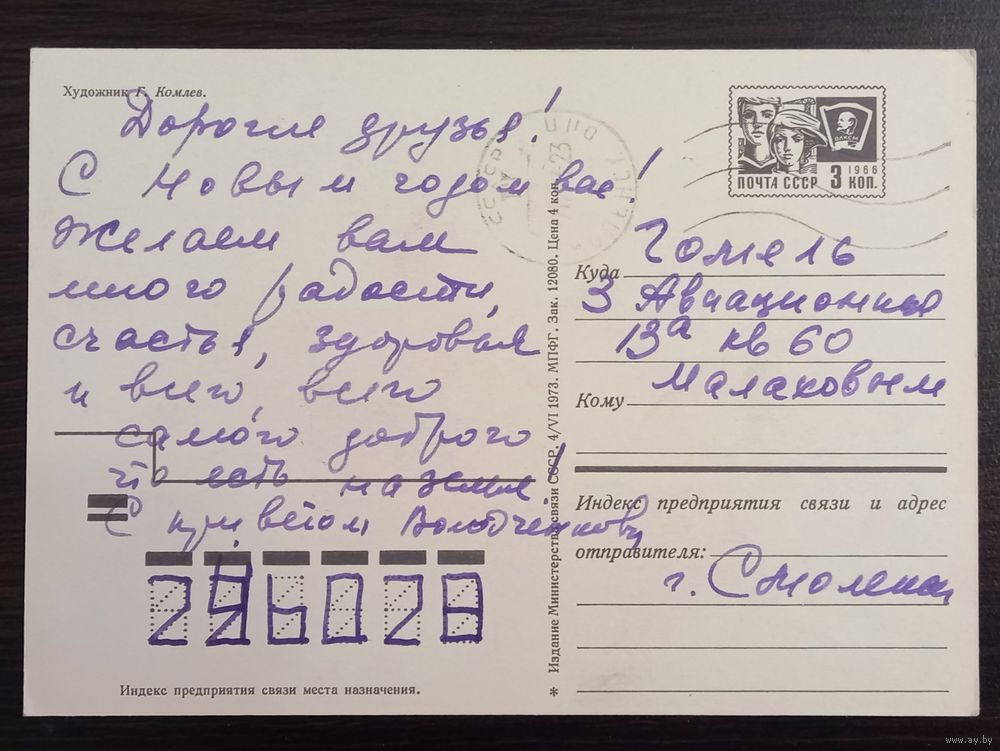 Художник Г. Комлев.
Дорогие друзья!
С Новым годом вас!
Желаем вам
много радости,
счастья, здоровья
и всего, всего
самого доброго
что есть на земле!
С приветом
ПОЧТА СССР 3 КОП.
1966
ВЛКСМ
Куда Гомель
3 Авиационный
13а кв 60
Кому Малаховым
Индекс предприятия связи и адрес
отправителя:
г. Смоленск
Издание Министерства связи СССР. 4/VI 1973. МПФГ. Зак. 12080. Цена 4 коп.
Индекс предприятия связи места назначения.
www.ay.by